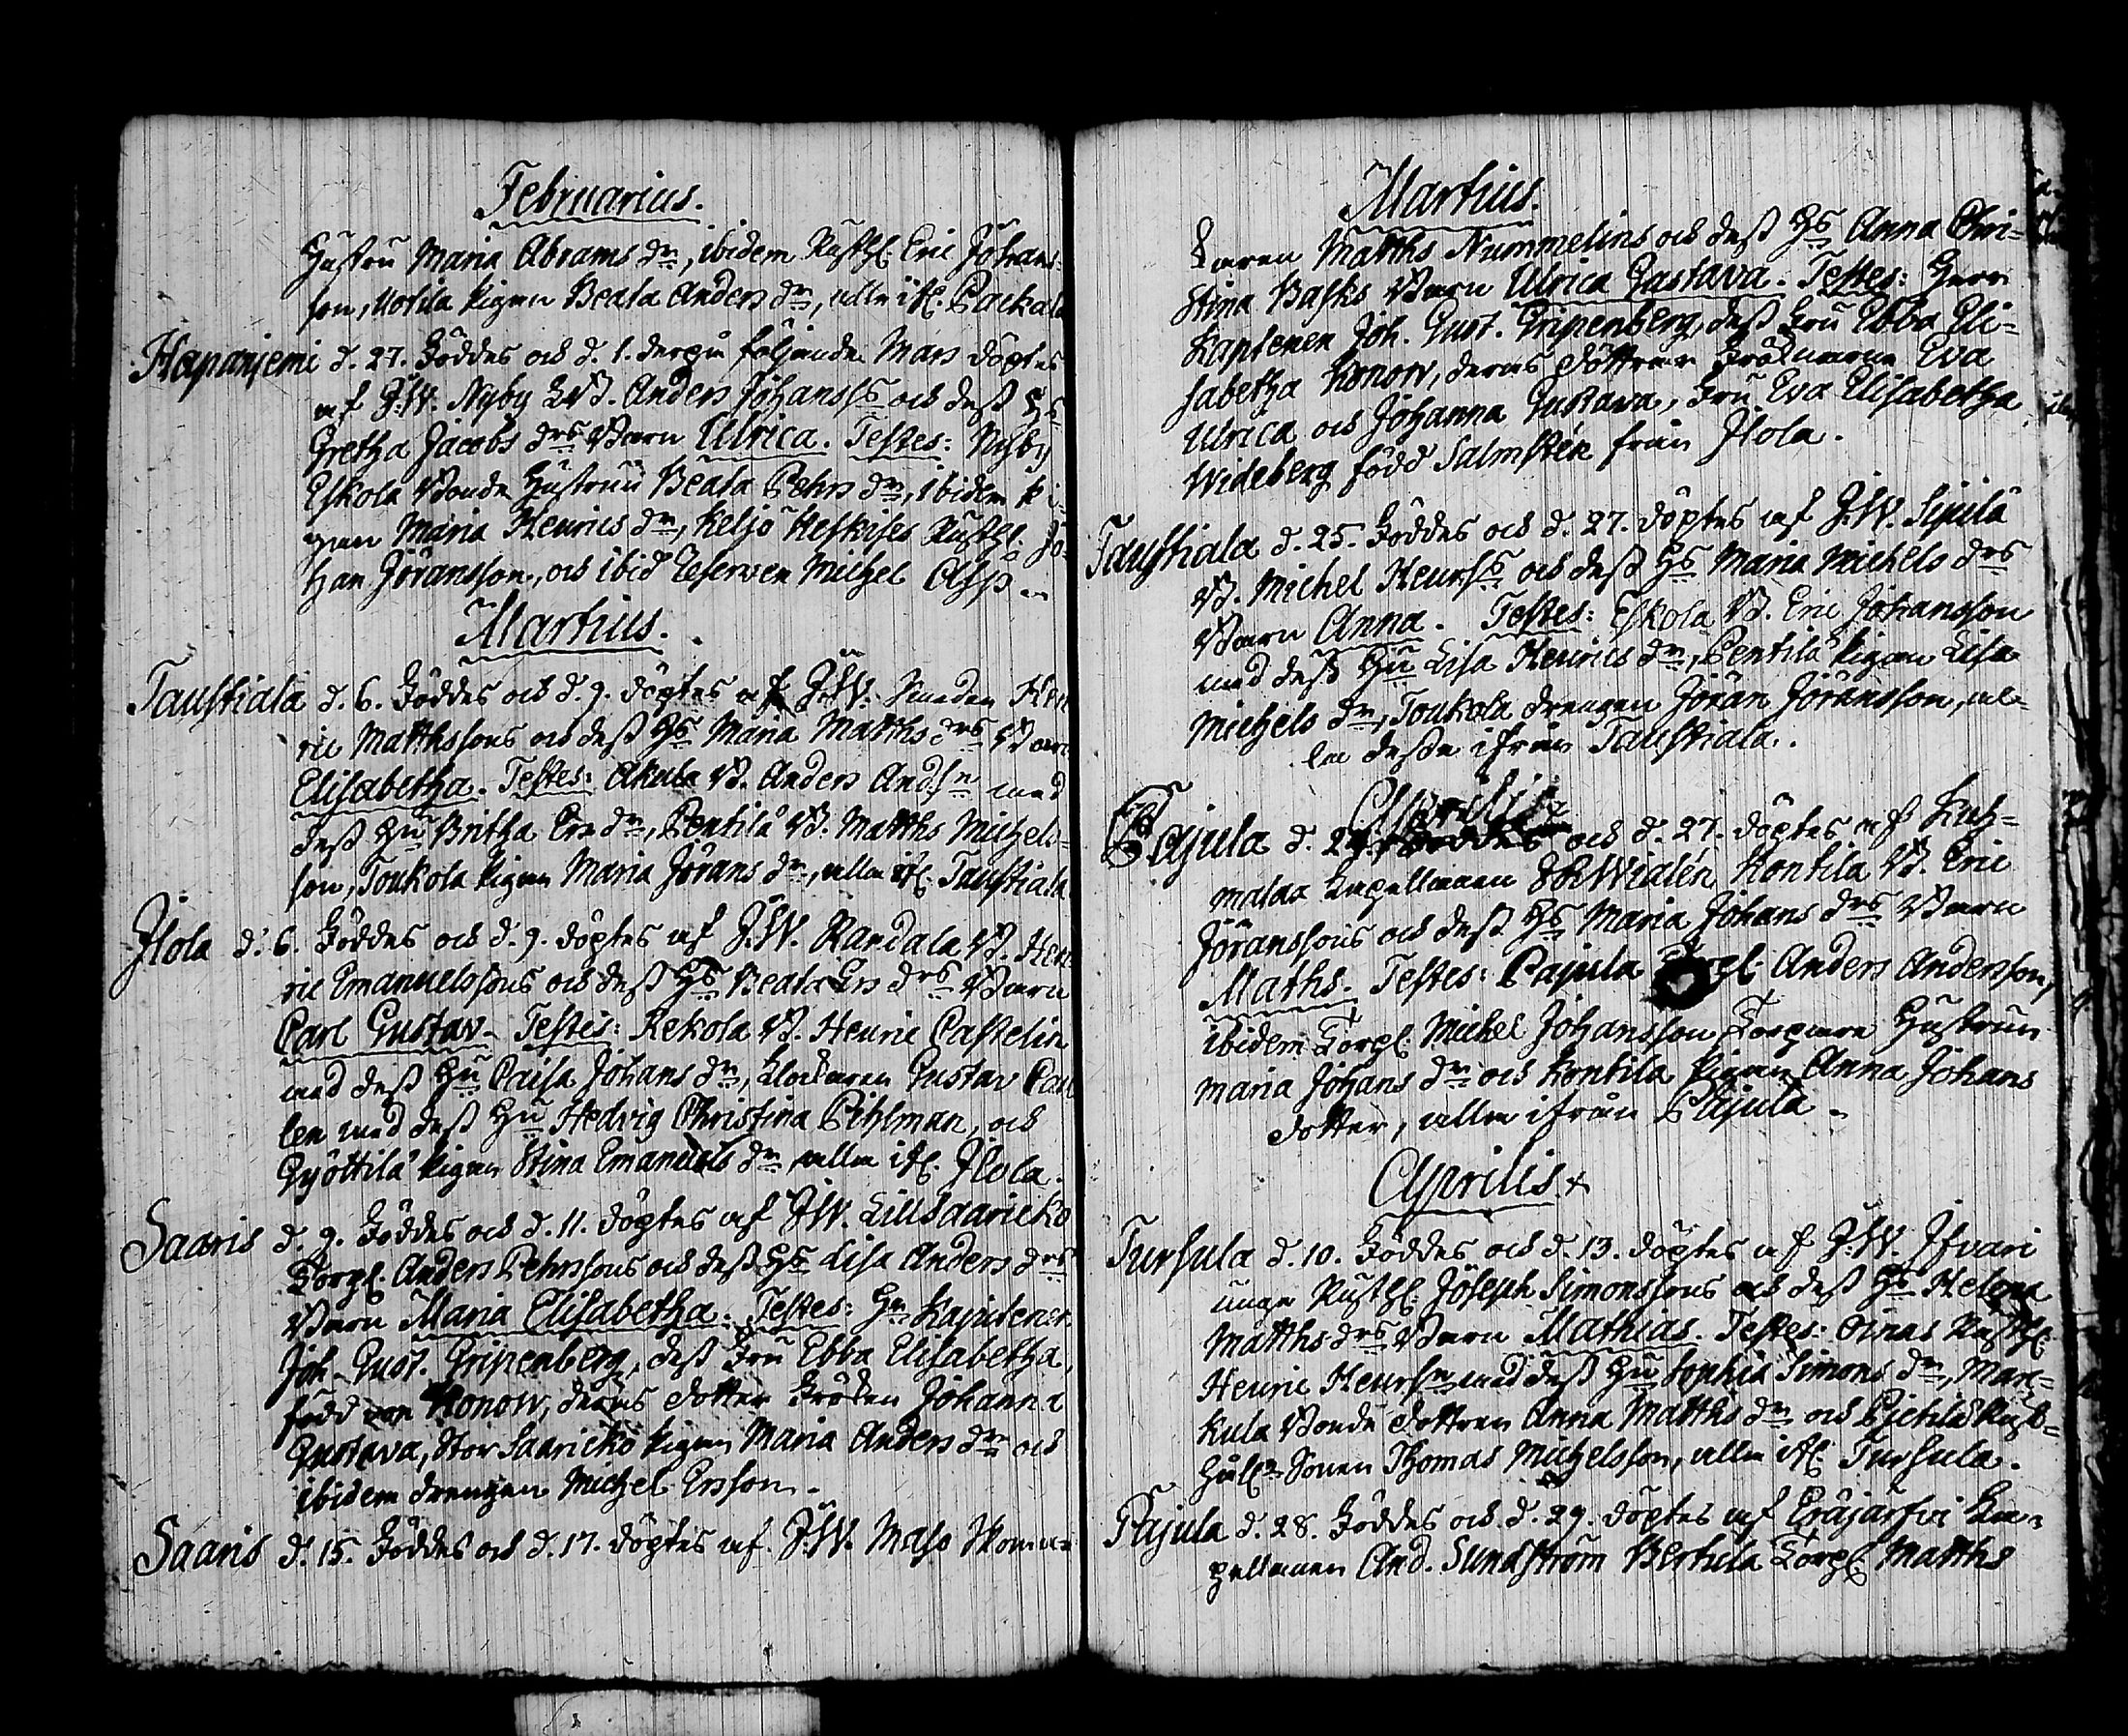 Februarius.
Hustru Maria Abrams dr, ibidem Rusth. Eric Johans-
son, Uotila Pigan Beata Anders dr, alla ifr. Packala
Hapanjemi d. 27. Föddes och d. 1. derpå följande Mars döptes
af J:W. Nyby LBd. Anders Johanss och dess Hs
Gretha Jacobs drs Barn Ulrica. Testes: Nyby
Eskola Bonde Hustrun Beata Pehrs dr, ibidem Pi-
gan Maria Henrics dr, Keljo Heskises Rusth. Jo-
han Jöransson, och ibid Reserven Michel Asp
Martius.
Taustiala d. 6. Föddes och d. 9. döptes af J:W. Smeden Hen
ric Matthssons och dess Hs Maria Matths drs Barn
Elisabetha. Testes: Akula Bd. Anders Andsn med
dess Hu Britha Ers dr, Pentilä Bd. Matths Michels-
son, Toukola Pigan Maria Jörans dr, alla ifr. Taustiala
Ilola d. 6. Föddes och d. 9. döptes af J.W. Randala Bd. Hen
ric Emanuelssons och dess Hs Beata Ers drs Barn
Carl Gustav. Testes: Rekola Bd. Henric Castelin
med dess Hu Caisa Johans dr, Klockaren Gustav Carl
len med dess Hu Hedvig Christina Pihlman, och
Gyöttilä Pigan Stina Emanuels dr alla ifr. Ilola.
Saaris d. 9. Föddes och d. 11. döptes af J.W. Lillsaaricko
Torp. Anders Pehrssons och dess Hs Lisa Anders drs
Barn Maria Elisabetha. Testes: Hr Kapitenen
Joh. Gust. Gripenberg, dess Fru Ebba Elisabetha,
född von Konow, deras dotter Fröken Johanna
Gustava, Stor Saaricko Pigan Maria Anders dr och
ibidem drengen Michel Ersson.
Saaris d. 15. Föddes och d. 17. döptes af J.W. Maso Skoma-
Martius.
karen Matths Nummelins och dess Hs Anna Chri-
stina Basks Barn Ulrica Gustava. Testes: Herr
Kaptenen Joh. Gust. Gripenberg, dess Fru Ebba Eli-
sabetha Konow, deras döttrar Fröknarna Eva
Ulrica och Johanna Gustava, Fru Eva Elisabetha
Wideberg född Salmstén från Ilola.
Taustiala d. 25. Föddes och d. 27. döptes af J.W. Sipilä
Bd. Michel Henrss och dess Hs Maria Michels drs
Barn Anna. Testes: Eskola Bd. Eric Johansson
med dess Hu Lisa Henrics dr, Pentilä Pigan Lisa
Michels dr, Toukola drengen Jöran Jöransson, al-
la dessa ifrån Taustiala.
Aprilis
Pajula d. 24. Föddes och d. 27. döptes af Kuh-
malax Capellanen Widlén Kontila Bd. Eric
Jöranssons och dess Hs Maria Johans drs Barn
Maths. Testes: Pajula Torp. Anders Andersson,
ibidem Torp. Michel Johansson Torpare Hustrun
Maria Johans dr och Kontila Pigan Anna Johans
dotter, alla ifrån Pajula.
Aprilis
Tursula d. 10. Föddes och d. 13. döptes af J.W. Ifvari
unge Rusth. Joseph Simonssons och dess Hs Helena
Matths drs Barn Mathias. Testes: Oinas Rusth.
Henric Henrsn med dess Hu Sophia Simons dr, Mar-
kula Bonde dottren Anna Matths dr och Pietilä Rust-
håls Sonen Thomas Michelsson, alla ifr. Tursula.
Pajula d. 28. Föddes och d. 29. döptes af Eräjärfvi Ka-
pellanen And. Sundström Bertula Torp. Matths